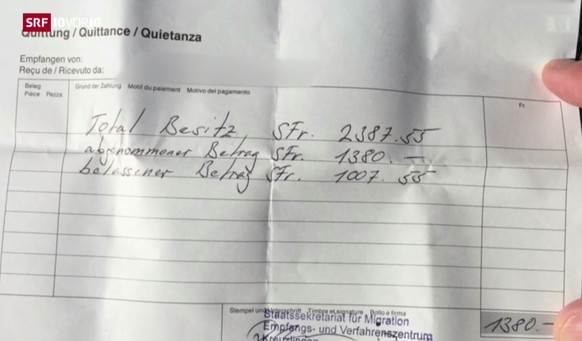 SRF 10VOR10
Quittung / Quittance / Quietanza
Empfangen von:
Reçu de / Ricevuto da:
Beleg Grund der Zahlung Motif du paiement Motivo del pagamento Fr.
Pièce Pezza
Total Besitz SFr. 2387.55
abgenommener Betrag SFr. 1380.—
belassener Betrag SFr. 1007.55
Stempel und Unterschrift Timbre et signature Bollo e firma
Staatssekretariat für Migration
Empfangs- und Verfahrenszentrum
Kreuzlingen
1380.—